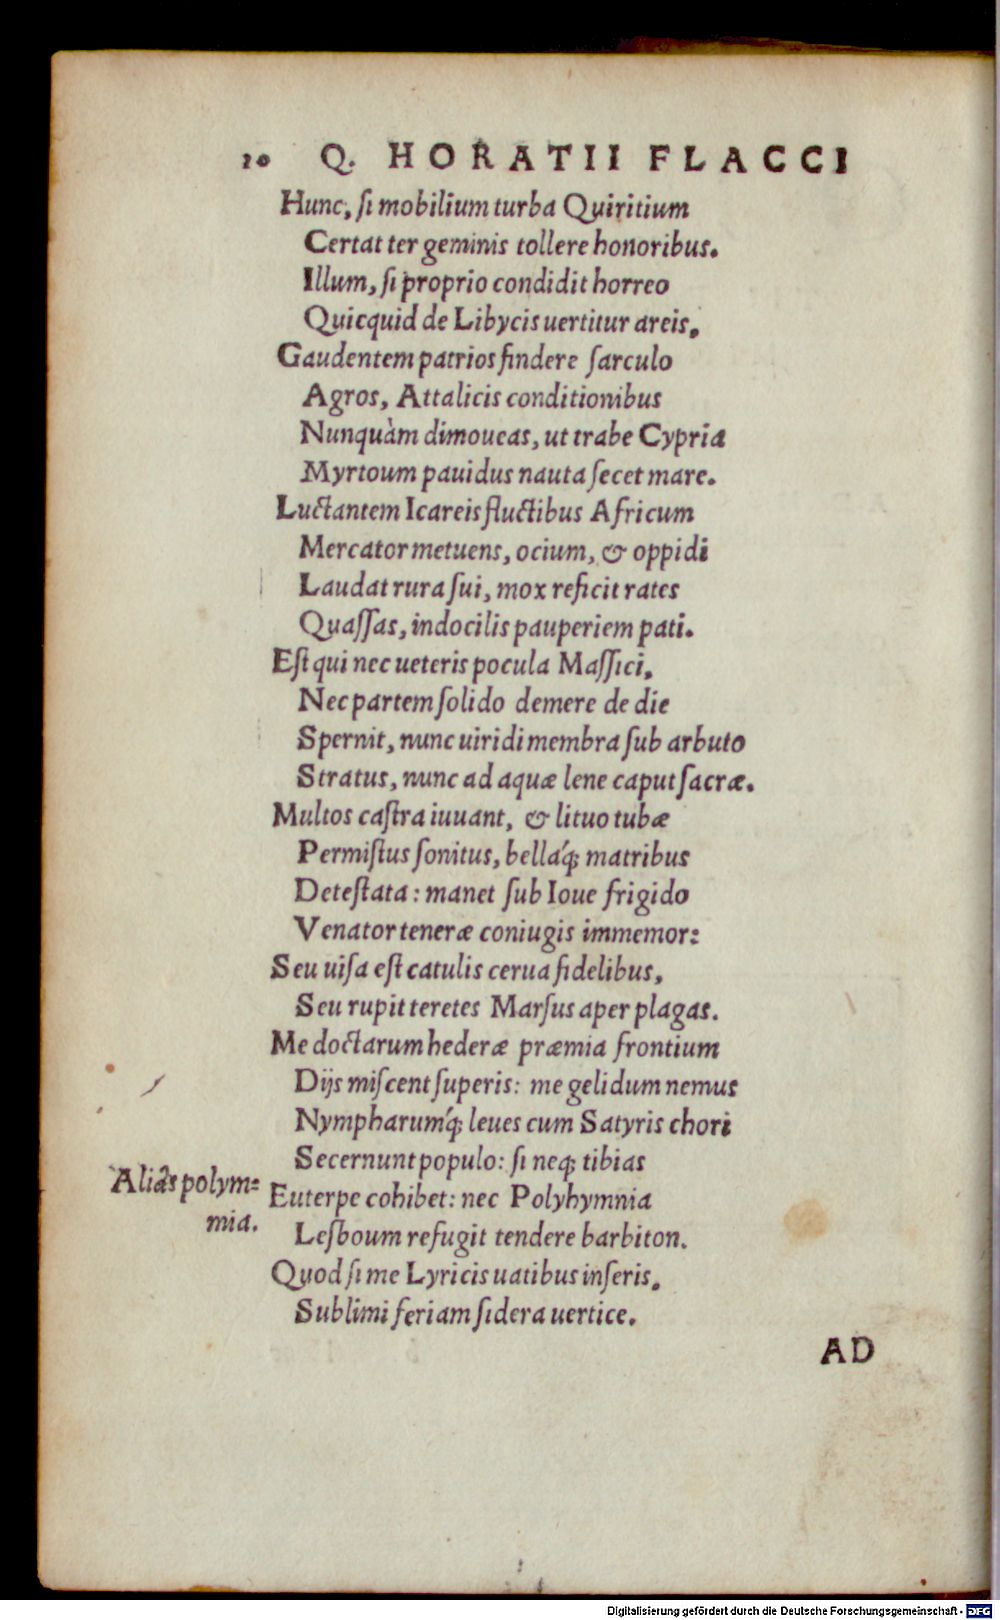 10 Q. HORATII FLACCI
Hunc, ſi mobilium turba Quiritium
Certat ter geminis tollere honoribus.
Illum, ſi proprio condidit horreo
Quicquid de Libycis uertitur areis,
Gaudentem patrios findere ſarculo
Agros, Attalicis conditionibus
Nunquàm dimoueas, ut trabe Cypria
Myrtoum pauidus nauta ſecet mare.
Luctantem Icareis fluctibus Africum
Mercator metuens, ocium, & oppidi
Laudat rura ſui, mox reficit rates
Quaſſas, indocilis pauperiem pati.
Eſt qui nec ueteris pocula Maſſici,
Nec partem ſolido demere de die
Spernit, nunc uiridi membra ſub arbuto
Stratus, nunc ad aquæ lene caput ſacræ.
Multos caſtra iuuant, & lituo tubæ
Permiſtus ſonitus, bellaq́; matribus
Deteſtata: manet ſub Ioue frigido
Venator teneræ coniugis immemor:
Seu uiſa eſt catulis cerua fidelibus,
Seu rupit teretes Marſus aper plagas.
Me doctarum hederæ præmia frontium
Dijs miſcent ſuperis: me gelidum nemus
Nympharumq́; leues cum Satyris chori
Secernunt populo: ſi neq; tibias
Aliàs polym=
mia.
Euterpe cohibet: nec Polyhymnia
Leſboum refugit tendere barbiton.
Quod ſi me Lyricis uatibus inſeris,
Sublimi feriam ſidera uertice.
AD
Digitalisierung gefördert durch die Deutsche Forschungsgemeinschaft - DFG